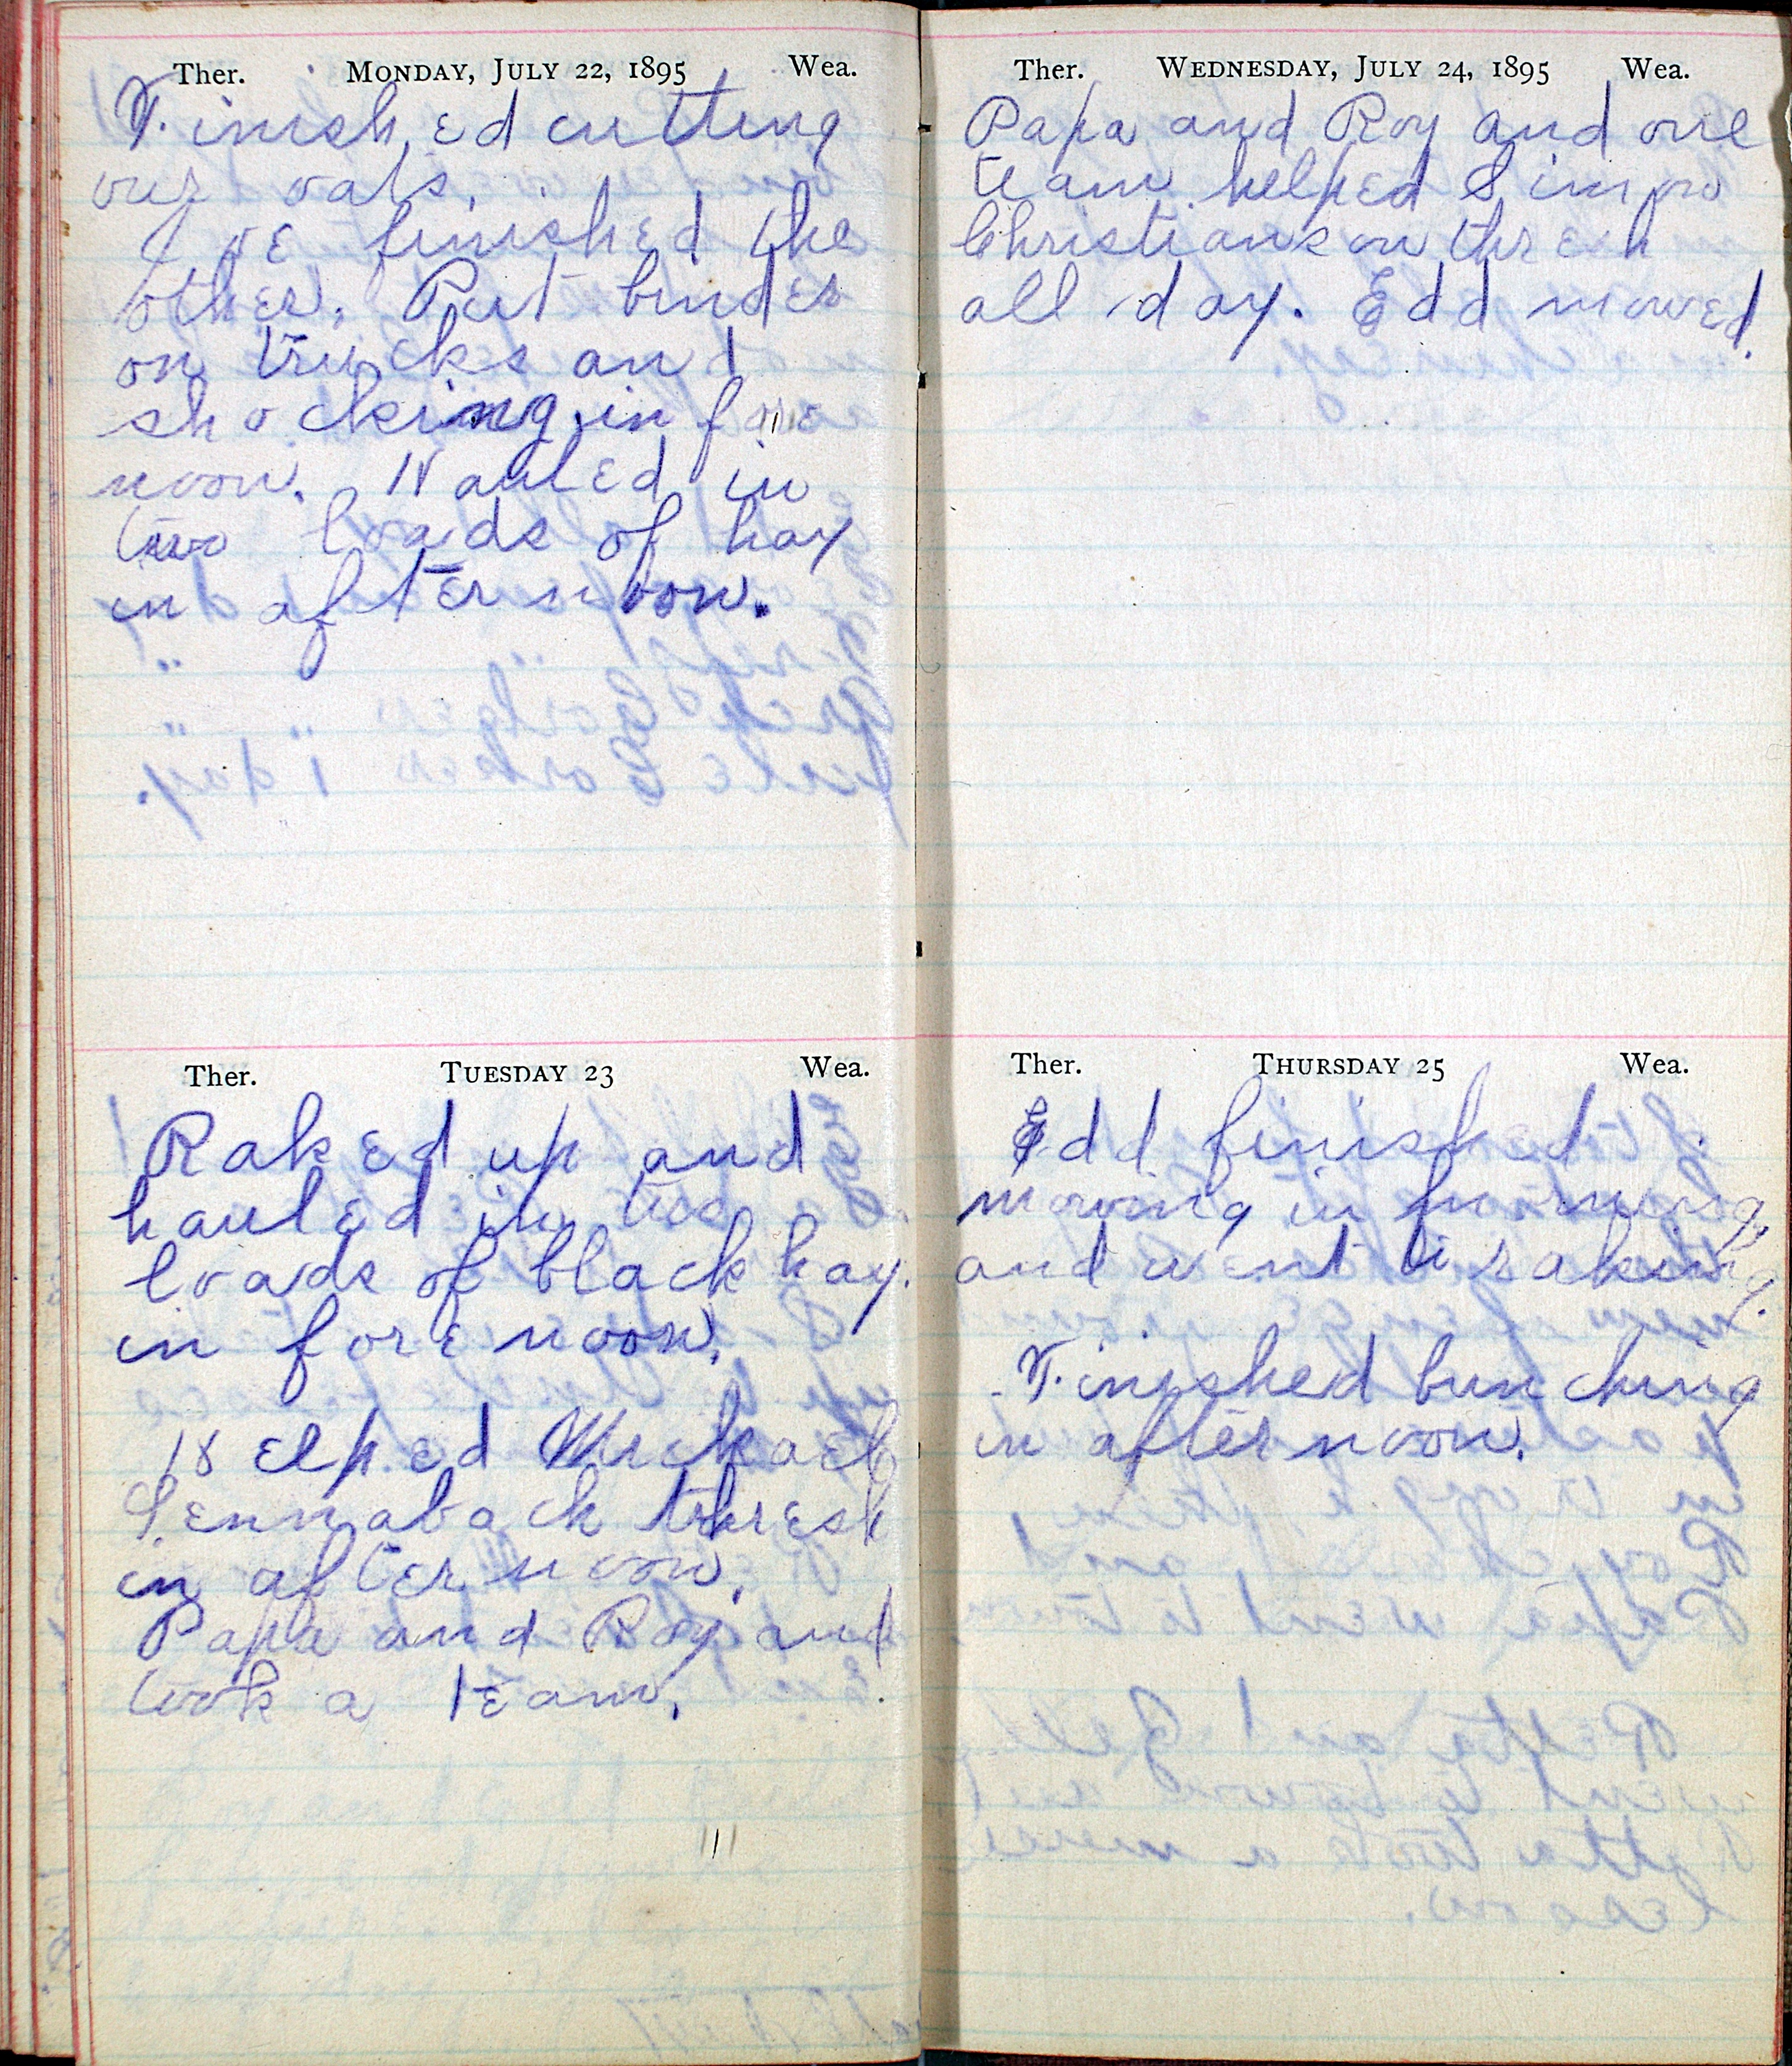 Ther. MONDAY, JULY 22, 1895 Wea.
Finished cutting
our oats.
We finished the
other. Put binder
on trucks and
shocking in fore
noon. Hauled in
two loads of hay
in afternoon.
Ther. TUESDAY 23 Wea.
Raked up and
hauled in two
loads of black hay.
in forenoon.
Helped Mickael
Pennaback thresh
in afternoon.
Papa and Roy and
took a team.
Ther. WEDNESDAY, JULY 24, 1895 Wea.
Papa and Roy and one
team helped Simon
Christianson thresh
all day. Edd mowed.
Ther. THURSDAY 25 Wea.
Edd finished
mowing in forning,
and went to raking.
Finished bunching
in afternoon.